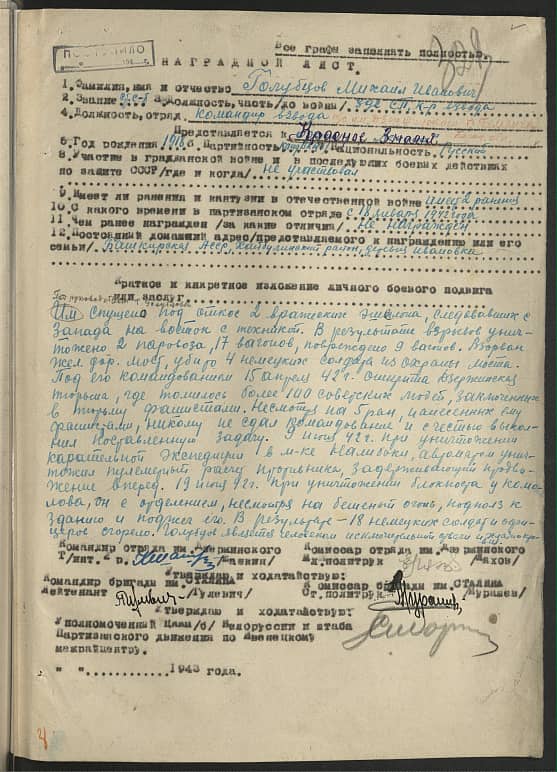 Все графы заполнять полностью.
ПОСТУПИЛО
НАГРАДНОЙ ЛИСТ.
1. Фамилия, имя и отчество Голубцов Михаил Иванович
2. Звание 3. Должность, часть /до войны/ к-р взвода
4. Должность, отряд. Командир взвода
Представляется к Красное Знамя
5. Год рождения 6. Партийность 7. Национальность. Русский
8. Участие в гражданской войне и в последующих боевых действиях
по защите СССР /где и когда/ не участвовал
9. Имеет ли ранения и контузии в отечественной войне имеет 2 ранения
10. С какого времени в партизанском отряде с 18 января 1942 года
11. Чем ранее награжден /за какие отличия/. Не награжден
12. Постоянный домашний адрес /представляемого к награждению или его
семьи/. Башкирская АССР, район, деревня Ивановка
Краткое и конкретное изложение личного боевого подвига
или заслуг.
Им спущено под откос 2 вражеских эшелона, следовавших с
Запада на восток с техникой. В результате взрывов унич-
тожено 2 паровоза, 17 вагонов, повреждено 9 вагонов. Взорван
жел. дор. мост, убито 4 немецких солдата из охраны моста.
Под его командованием 15 апреля 42 г. Дзержинская
тюрьма, где томилось более 100 советских людей, заключенных
в тюрьму фашистами. Несмотря на 5 ран, нанесенных ему
фашистами, никому не сдал командование и с честью выпол-
нил поставленную задачу. 9 июня 42 г. при уничтожении
карательной экспедиции в м-ке Налибоки, автоматом унич-
тожил пулеметный расчет противника, задерживающий продви-
жение вперед. 19 июня 42 г. при уничтожении блокпоста у
он с отделением, несмотря на бешеный огонь, подполз к
зданию и поджег его. В результате – 18 немецких солдат и офи-
церов сгорело. Голубцов является человеком исключительной
Командир отряда им. Дзержинского Комиссар отряда им. Дзержинского
Т/инт. 2 р. Мл. политрук
Утверждаю и ходатайствую:
Командир бригады им. СТАЛИНА Комиссар бригады им. СТАЛИНА
Лейтенант /Гулевич/ Ст. политрук /Мурашев/
Утверждаю и ходатайствую:
Уполномоченный ЦККП/б/ Белоруссии и штаба
Партизанского движения по Ивенецкому
межрайцентру.
" " ............1943 года.